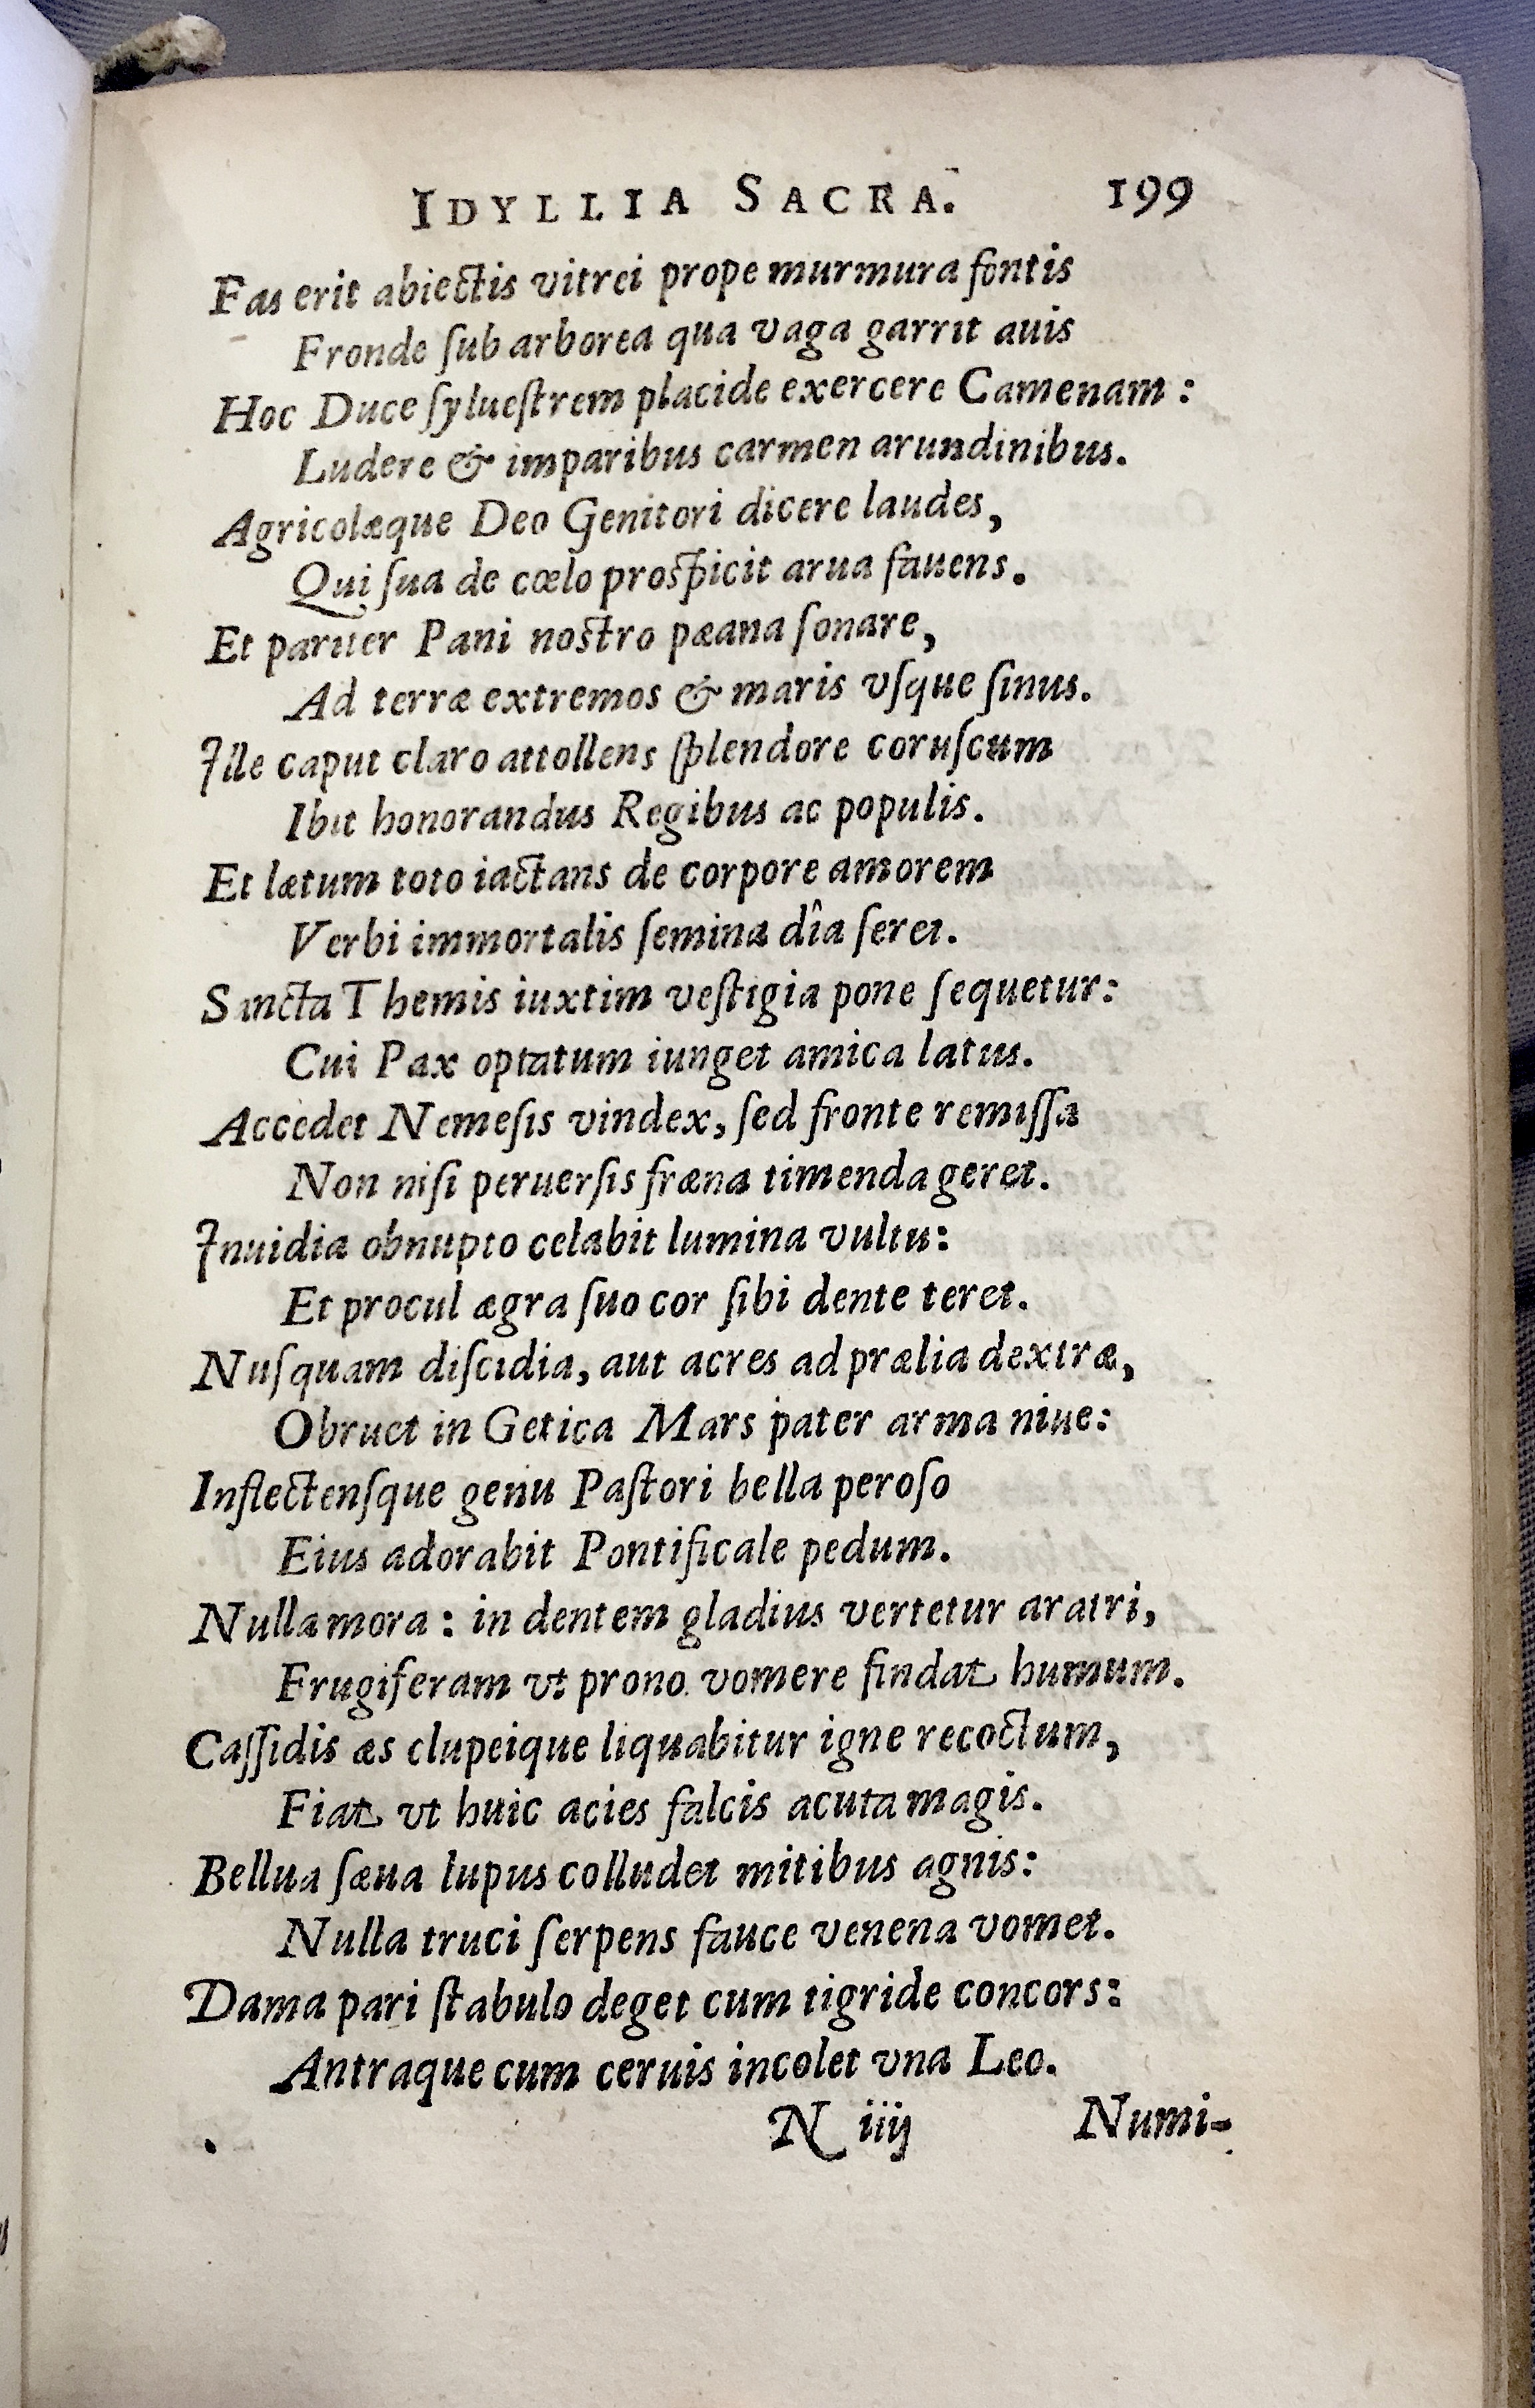 IDYLLIA SACRA. 199
Fas erit abiectis vitrei prope murmura fontis
Fronde ſub arborea qua vaga garrit auis
Hoc Duce ſylueſtrem placide exercere Camenam :
Ludere & imparibus carmen arundinibus.
Agricolæque Deo Genitori dicere laudes,
Qui ſua de cœlo proſpicit arua fauens.
Et pariter Pani noſtro pæana ſonare,
Ad terræ extremos & maris vſque ſinus.
Ille caput claro attollens ſplendore coruſcum
Ibit honorandus Regibus ac populis.
Et lætum toto iactans de corpore amorem
Verbi immortalis ſemina dîa ſeret.
Sancta Themis iuxtim veſtigia pone ſequetur:
Cui Pax optatum iunget amica latus.
Accedet Nemeſis vindex, ſed fronte remiſſa
Non niſi peruerſis fræna timenda geret.
Inuidia obnupto celabit lumina vultu:
Et procul ægra ſuo cor ſibi dente teret.
Nuſquam diſcidia, aut acres ad prælia dextræ,
Obruet in Getica Mars pater arma niue:
Inflectenſque genu Paſtori bella peroſo
Eius adorabit Pontificale pedum.
Nulla mora : in dentem gladius vertetur aratri,
Frugiferam vt prono vomere findat humum.
Caſſidis æs clupeique liquabitur igne recoctum,
Fiat vt huic acies falcis acuta magis.
Bellua ſæua lupus colludet mitibus agnis:
Nulla truci ſerpens fauce venena vomet.
Dama pari ſtabulo deget cum tigride concors:
Antraque cum ceruis incolet vna Leo.
N iiij Numi-